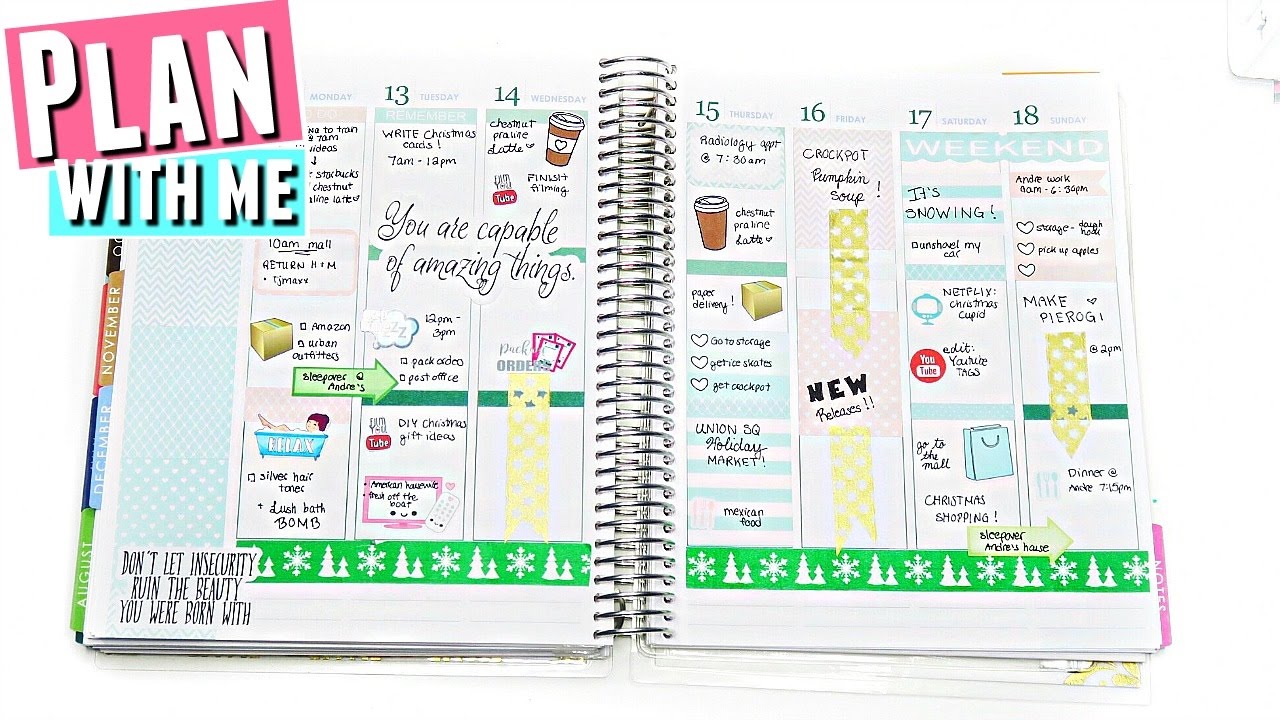 PLAN
WITH ME
MONDAY
to train
7am
ideas
starbucks
chestnut
praline latte
10am mall
RETURN H+M
+ TJmaxx
Amazon
urban
outfitters
sleepover @
Andre's
RELAX
silver hair
toner
+ Lush bath
BOMB
13 TUESDAY
REMEMBER
WRITE Christmas
cards!
7am - 12pm
You are capable
of amazing things.
12pm -
3pm
pack orders
post office
Tube
DIY Christmas
gift ideas
American housewife
fresh off the
boat
14 WEDNESDAY
chestnut
praline
Latte
Tube
FINISH
filming
ORDERS
15 THURSDAY
Radiology appt
@ 7:30am
chestnut
praline
Latte
paper
delivery!
Go to storage
get ice skates
get crockpot
UNION SQ
Holiday
MARKET!
mexican
food
16 FRIDAY
CROCKPOT
Pumpkin
Soup!
NEW
Releases!!
17 SATURDAY
WEEKEND
IT'S
SNOWING!
unshovel my
car
NETFLIX:
christmas
cupid
You
Tube
edit:
Youtube
TAGS
go to
the
mall
CHRISTMAS
SHOPPING!
sleepover
Andre's house
18 SUNDAY
Andre work
storage - dough
pick up apples
MAKE
PIEROGI
@ 2pm
Dinner @
Andre 7:15pm
DON'T LET INSECURITY
RUIN THE BEAUTY
YOU WERE BORN WITH
NOVEMBER
DECEMBER
AUGUST
NOTES